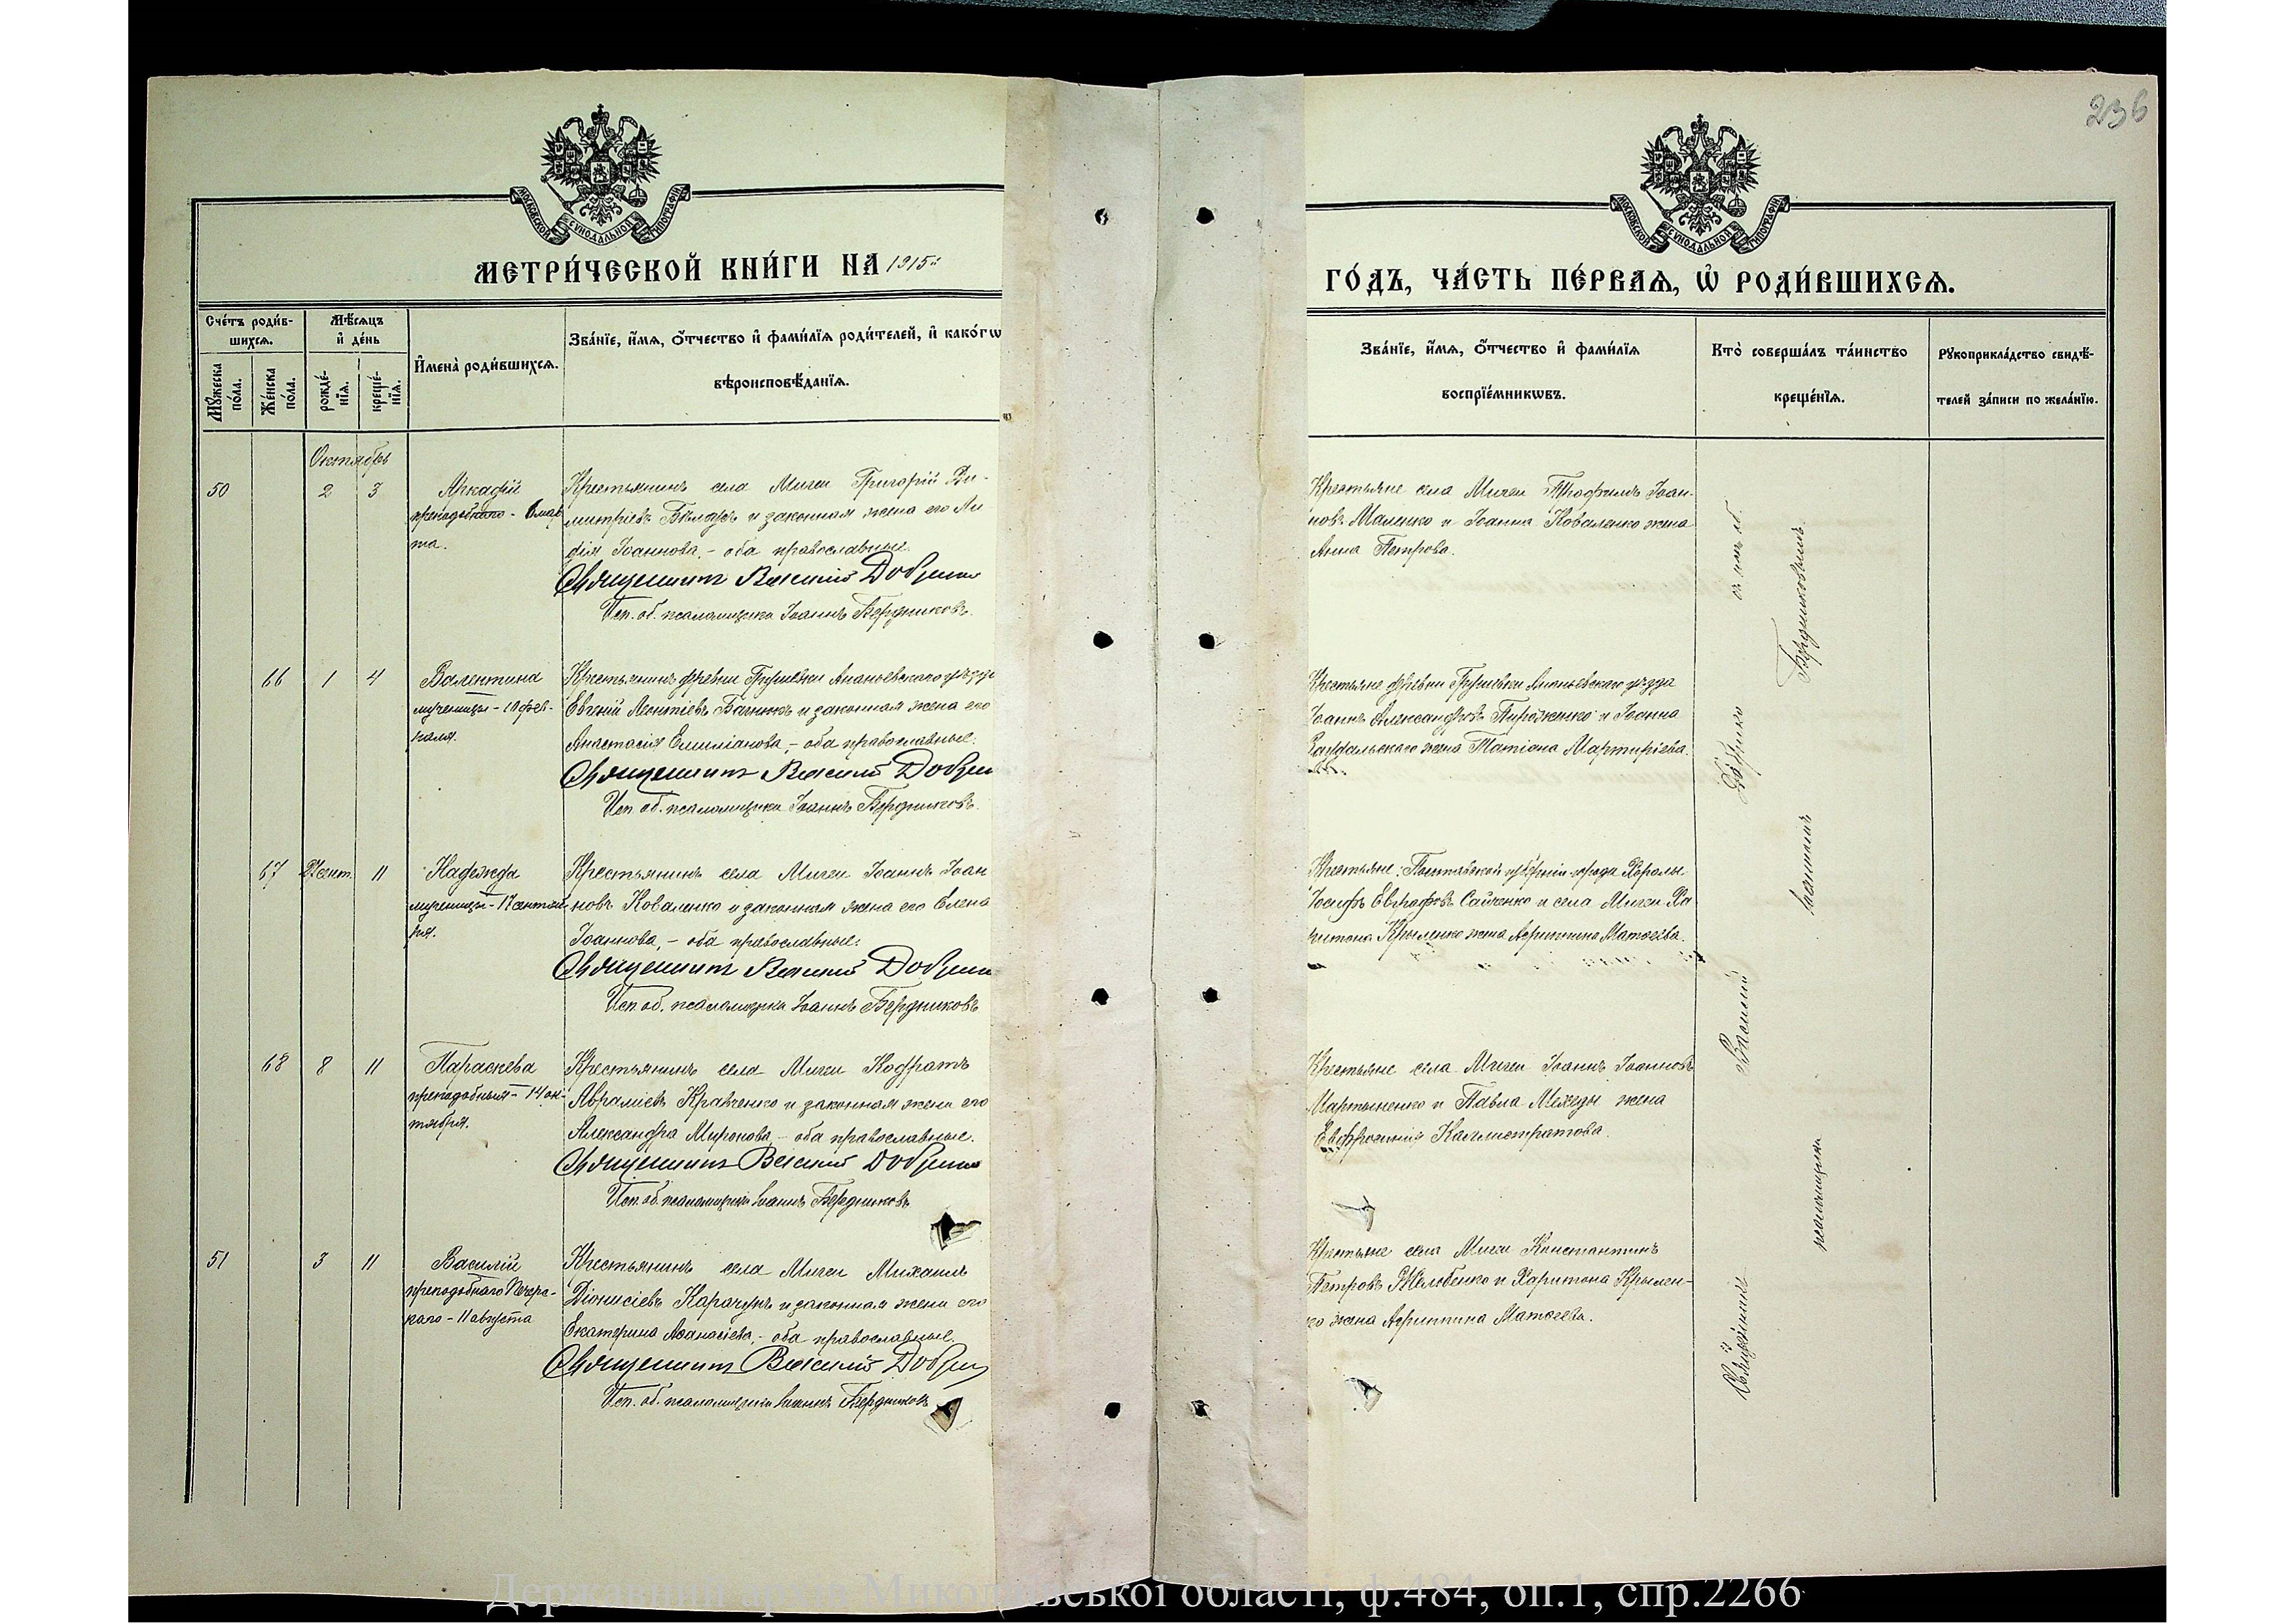 236
МОСКОВСКОЙ СѴНОДАЛЬНОЙ ТИПОГРАФІИ
МОСКОВСКОЙ СѴНОДАЛЬНОЙ ТИПОГРАФІИ
МЕТРИ́ЧЕСКОЙ КНИ́ГИ НА 1915й
ГО́ДЪ, ЧА́СТЬ ПЕ́РВАѦ, Ѡ҆ РОДИ́ВШИХСѦ.
Сче́тъ роди́в-
шихсѧ.
Мꙋ́жеска по́ла.
Же́нска по́ла.
Мѣ́сѧцъ
и҆ де́нь
рожде́-
нїѧ.
креще́-
нїѧ.
И҆мена̀ роди́вшихсѧ.
Зва́нїе, и҆́мѧ, ѻ҆́тчество и҆ фами́лїѧ роди́телей, и҆ како́гѡ
вѣроисповѣ́данїѧ.
Зва́нїе, и҆́мѧ, ѻ҆́тчество и҆ фами́лїѧ
воспрїе́мникѡвъ.
Кто̀ соверша́лъ та́инство
креще́нїѧ.
Рꙋкоприкла́дство свидѣ́-
телей за́писи по жела́нїю.
Октябрь
50 2 3 Аркадій
преподобнаго - 6 мар
та.
Крестьянинъ села Мигеи Григорій Ди-
митріевъ и законная жена его Ли
дія Іоаннова, - оба православные.
Священникъ Василій
Исп. об. псаломщика Іоаннъ Бердниковъ.
Крестьяне села Мигеи Ѳеофилъ Іоан-
новъ Маленко и Іоанна Коваленко жена
Анна Петрова.
66 1 4 Валентина
мученицы - 10 фев-
раля.
Крестьянинъ дрёвни Грушевки Ананьевскаго уѣзда
Евгеній Леонтіевъ и законная жена его
Анастасія Емиліанова, - оба православные.
Священникъ Василій
Исп. об. псаломщика Іоаннъ Бердниковъ.
Крестьяне Грушевки Ананьевскаго уѣзда
Іоаннъ Александровъ Пироженко и Іоанна
жена Татіана Мартиріева.
67 27 сент. 11 Надежда
мученицы - 17 сентяб
ря.
Крестьянинъ села Мигеи Іоаннъ Іоан
новъ Коваленко и законная жена его Елена
Іоаннова, - оба православные.
Священникъ Василій
Исп. об. псаломщика Іоаннъ Бердниковъ
Крестьяне: Полтавской губерніи города Хоролы
Іосифъ Евграфовъ Сайченко и села Мигеи Ха
ритона Крыленко жена Агриппина Матѳеева.
68 8 11 Параскева
преподобныя - 14 ок-
тября.
Крестьянинъ села Мигеи Кодратъ
Авраміевъ Кравченко и законная жена его
Александра Миронова, - оба православные.
Священникъ Василій
Исп. об. псаломщика Іоаннъ Бердниковъ
Крестьяне села Мигеи Іоаннъ Іоанновъ
Мартыненко и Павла Мехеды жена
Евфросинія Каллистратова.
51 3 11 Василій
преподобнаго Печерс-
каго - 11 августа
Крестьянинъ села Мигеи Михаилъ
Діонисіевъ Карачунъ и законная жена его
Екатерина Аѳанасіева, - оба православные.
Священникъ Василій
Исп. об. псаломщика Іоаннъ Бердниковъ
Крестьяне села Мигеи Константинъ
Петровъ Желобенко и Харитона Крылен-
ко жена Агриппина Матѳеева.
Священникъ Василій съ исп. об.
псаломщика Іоанномъ Бердниковымъ
Державний архів Миколаївської області, ф.484, оп.1, спр.2266